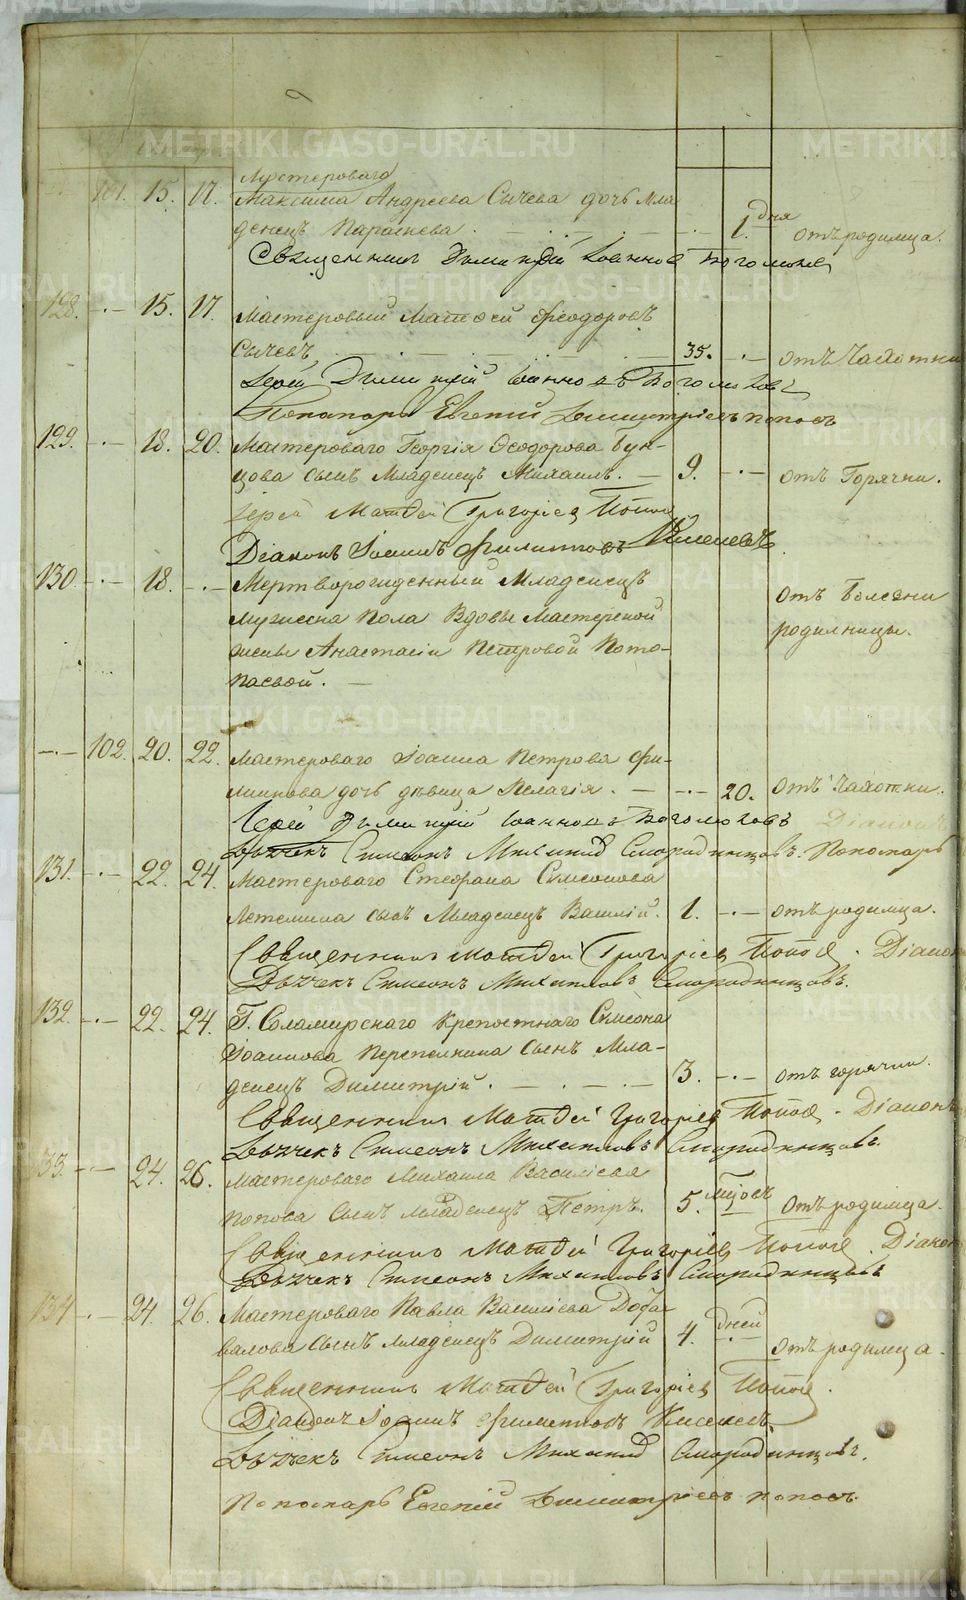 METRIKI.GASO-URAL.RU
101. 15. 17. Мастероваго
Максима Андреева Сычева дочь мла-
денецъ Параскева. 1. дня отъ родимца.
Священникъ Димитрій Іоанновъ Боголюбовъ
128. 15. 17. Мастеровый Матөей Ѳеодоровъ
Сычевъ, 35. отъ Чахотки
Іерей Димитрій Іоанновъ Боголюбовъ
Пономарь Евгеній Димитріевъ Поповъ
129. 18. 20. Мастероваго Георгія Ѳеодорова Бун-
цова сынъ Младенецъ Михаилъ. 9. отъ Горячки.
Іерей Матѳей Григоріевъ Поповъ
Діаконъ Іоаннъ Филипповъ Киселевъ
130. 18. Мертворожденный Младенецъ
Мужеска пола Вдовы Мастерской
жены Анастасіи Петровой Пото-
паевой. отъ болезни
родилницы.
102. 20. 22. Мастероваго Іоанна Петрова Фи-
липпова дочь дѣвица Пелагія. 20. отъ чахотки.
Іерей Димитрій Іоанновъ Боголюбовъ Діаконъ
Дьячекъ Симеонъ Михайловъ Смородинцовъ. Пономарь
131. 22. 24. Мастероваго Стефана Симеонова
Летемина сынъ Младенецъ Василій. 1. отъ родимца.
Священникъ Матѳей Григоріевъ Поповъ. Діаконъ
Дьячекъ Симеонъ Михайловъ Смородинцовъ.
132. 22. 24. Г. Соломирскаго крепостнаго Симеона
Іоаннова Перепелкина сынъ Мла-
денецъ Димитрій. 3. отъ горячки.
Священникъ Матѳей Григоріевъ Поповъ. Діаконъ
Дьячекъ Симеонъ Михайловъ Смородинцовъ.
133. 24. 26. Мастероваго Михаила Василіева
Попова сынъ младенецъ Петръ. 5. мѣсъ Отъ родимца.
Священникъ Матѳей Григоріевъ Поповъ. Діаконъ
Дьячекъ Симеонъ Михайловъ Смородинцовъ
134. 24. 26. Мастероваго Павла Василіева
сынъ младенецъ Димитрій 4. дней Отъ родимца.
Священникъ Матѳей Григоріевъ Поповъ.
Діаконъ Іоаннъ Филиповъ Киселевъ
Дьячекъ Симеонъ Михайловъ Смородинцовъ.
Пономарь Евгеній Димитріевъ Поповъ.